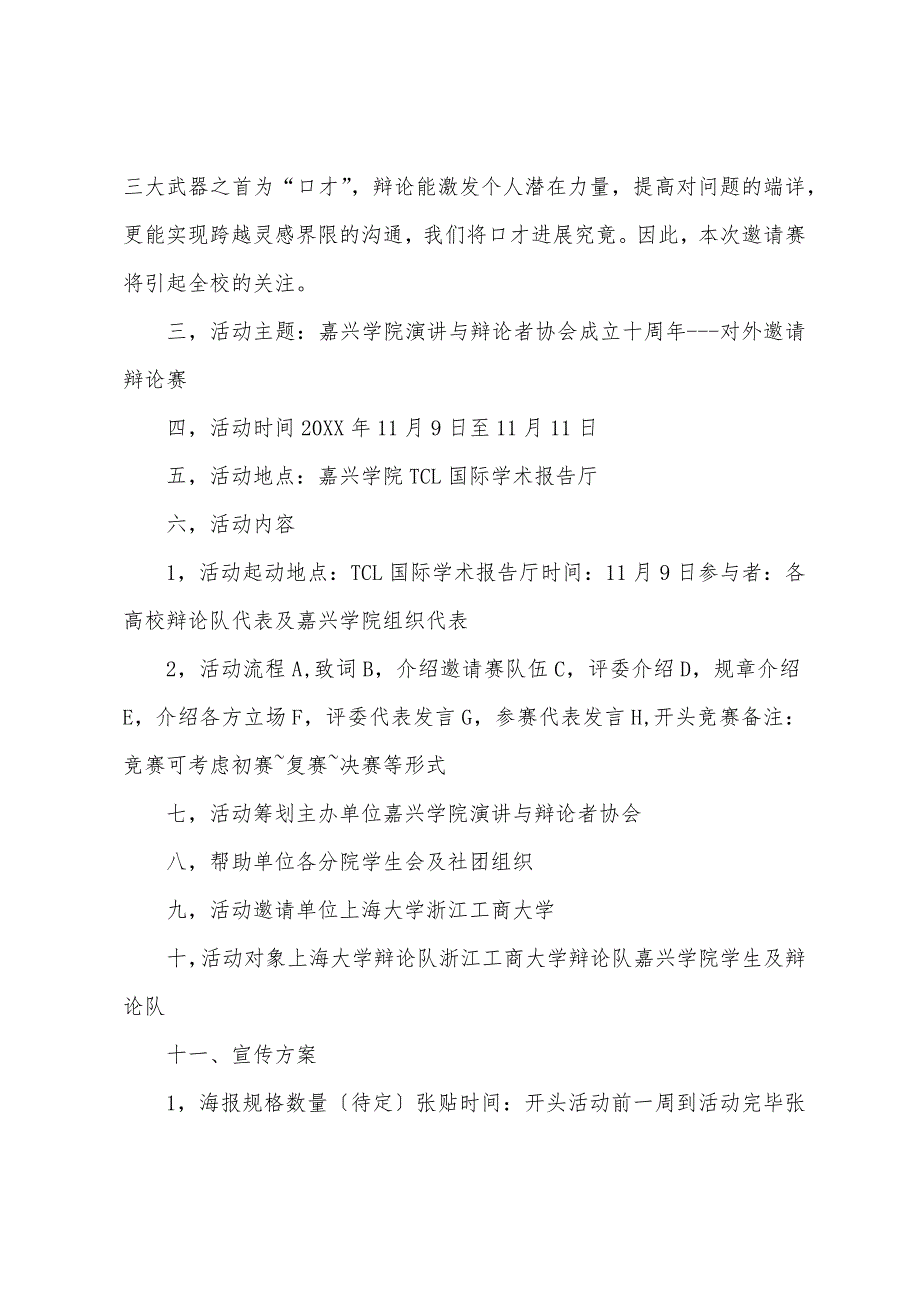 三大武器之首为“口才”，辩论能激发个人潜在力量，提高对问题的端详，
更能实现跨越灵感界限的沟通，我们将口才进展究竟。因此，本次邀请赛
将引起全校的关注。
三，活动主题：嘉兴学院演讲与辩论者协会成立十周年---对外邀请
辩论赛
四，活动时间 20XX 年 11 月 9 日至 11 月 11 日
五，活动地点：嘉兴学院 TCL 国际学术报告厅
六，活动内容
1，活动起动地点：TCL 国际学术报告厅时间：11 月 9 日参与者：各
高校辩论队代表及嘉兴学院组织代表
2，活动流程 A,致词 B，介绍邀请赛队伍 C，评委介绍 D，规章介绍
E，介绍各方立场 F，评委代表发言 G，参赛代表发言 H,开头竞赛备注：
竞赛可考虑初赛~复赛~决赛等形式
七，活动筹划主办单位嘉兴学院演讲与辩论者协会
八，帮助单位各分院学生会及社团组织
九，活动邀请单位上海大学浙江工商大学
十,活动对象上海大学辩论队浙江工商大学辩论队嘉兴学院学生及辩
论队
十一、宣传方案
1，海报规格数量〔待定〕张贴时间：开头活动前一周到活动完毕张